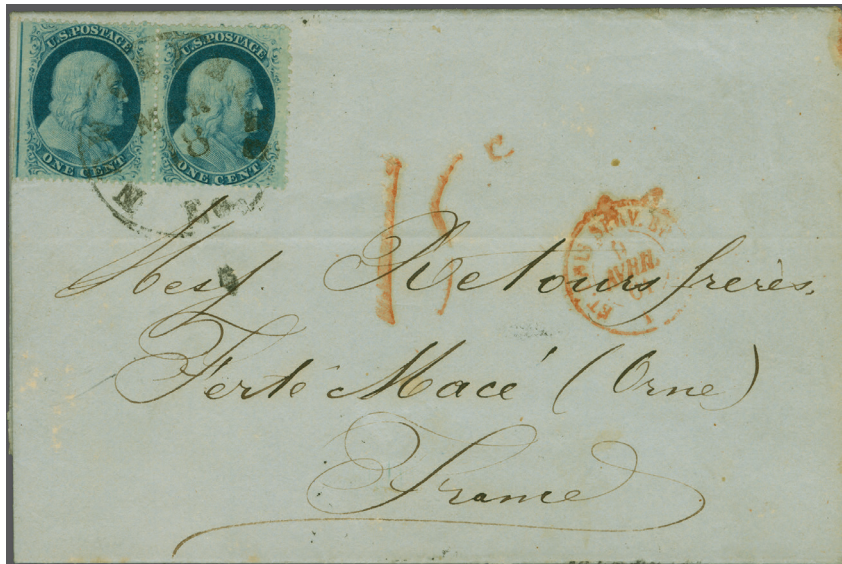 U.S. POSTAGE
ONE CENT
U.S. POSTAGE
ONE CENT
15 c
SERV. BR
AVRIL
Mess. Retours frères,
Ferté Macé (Orne)
France